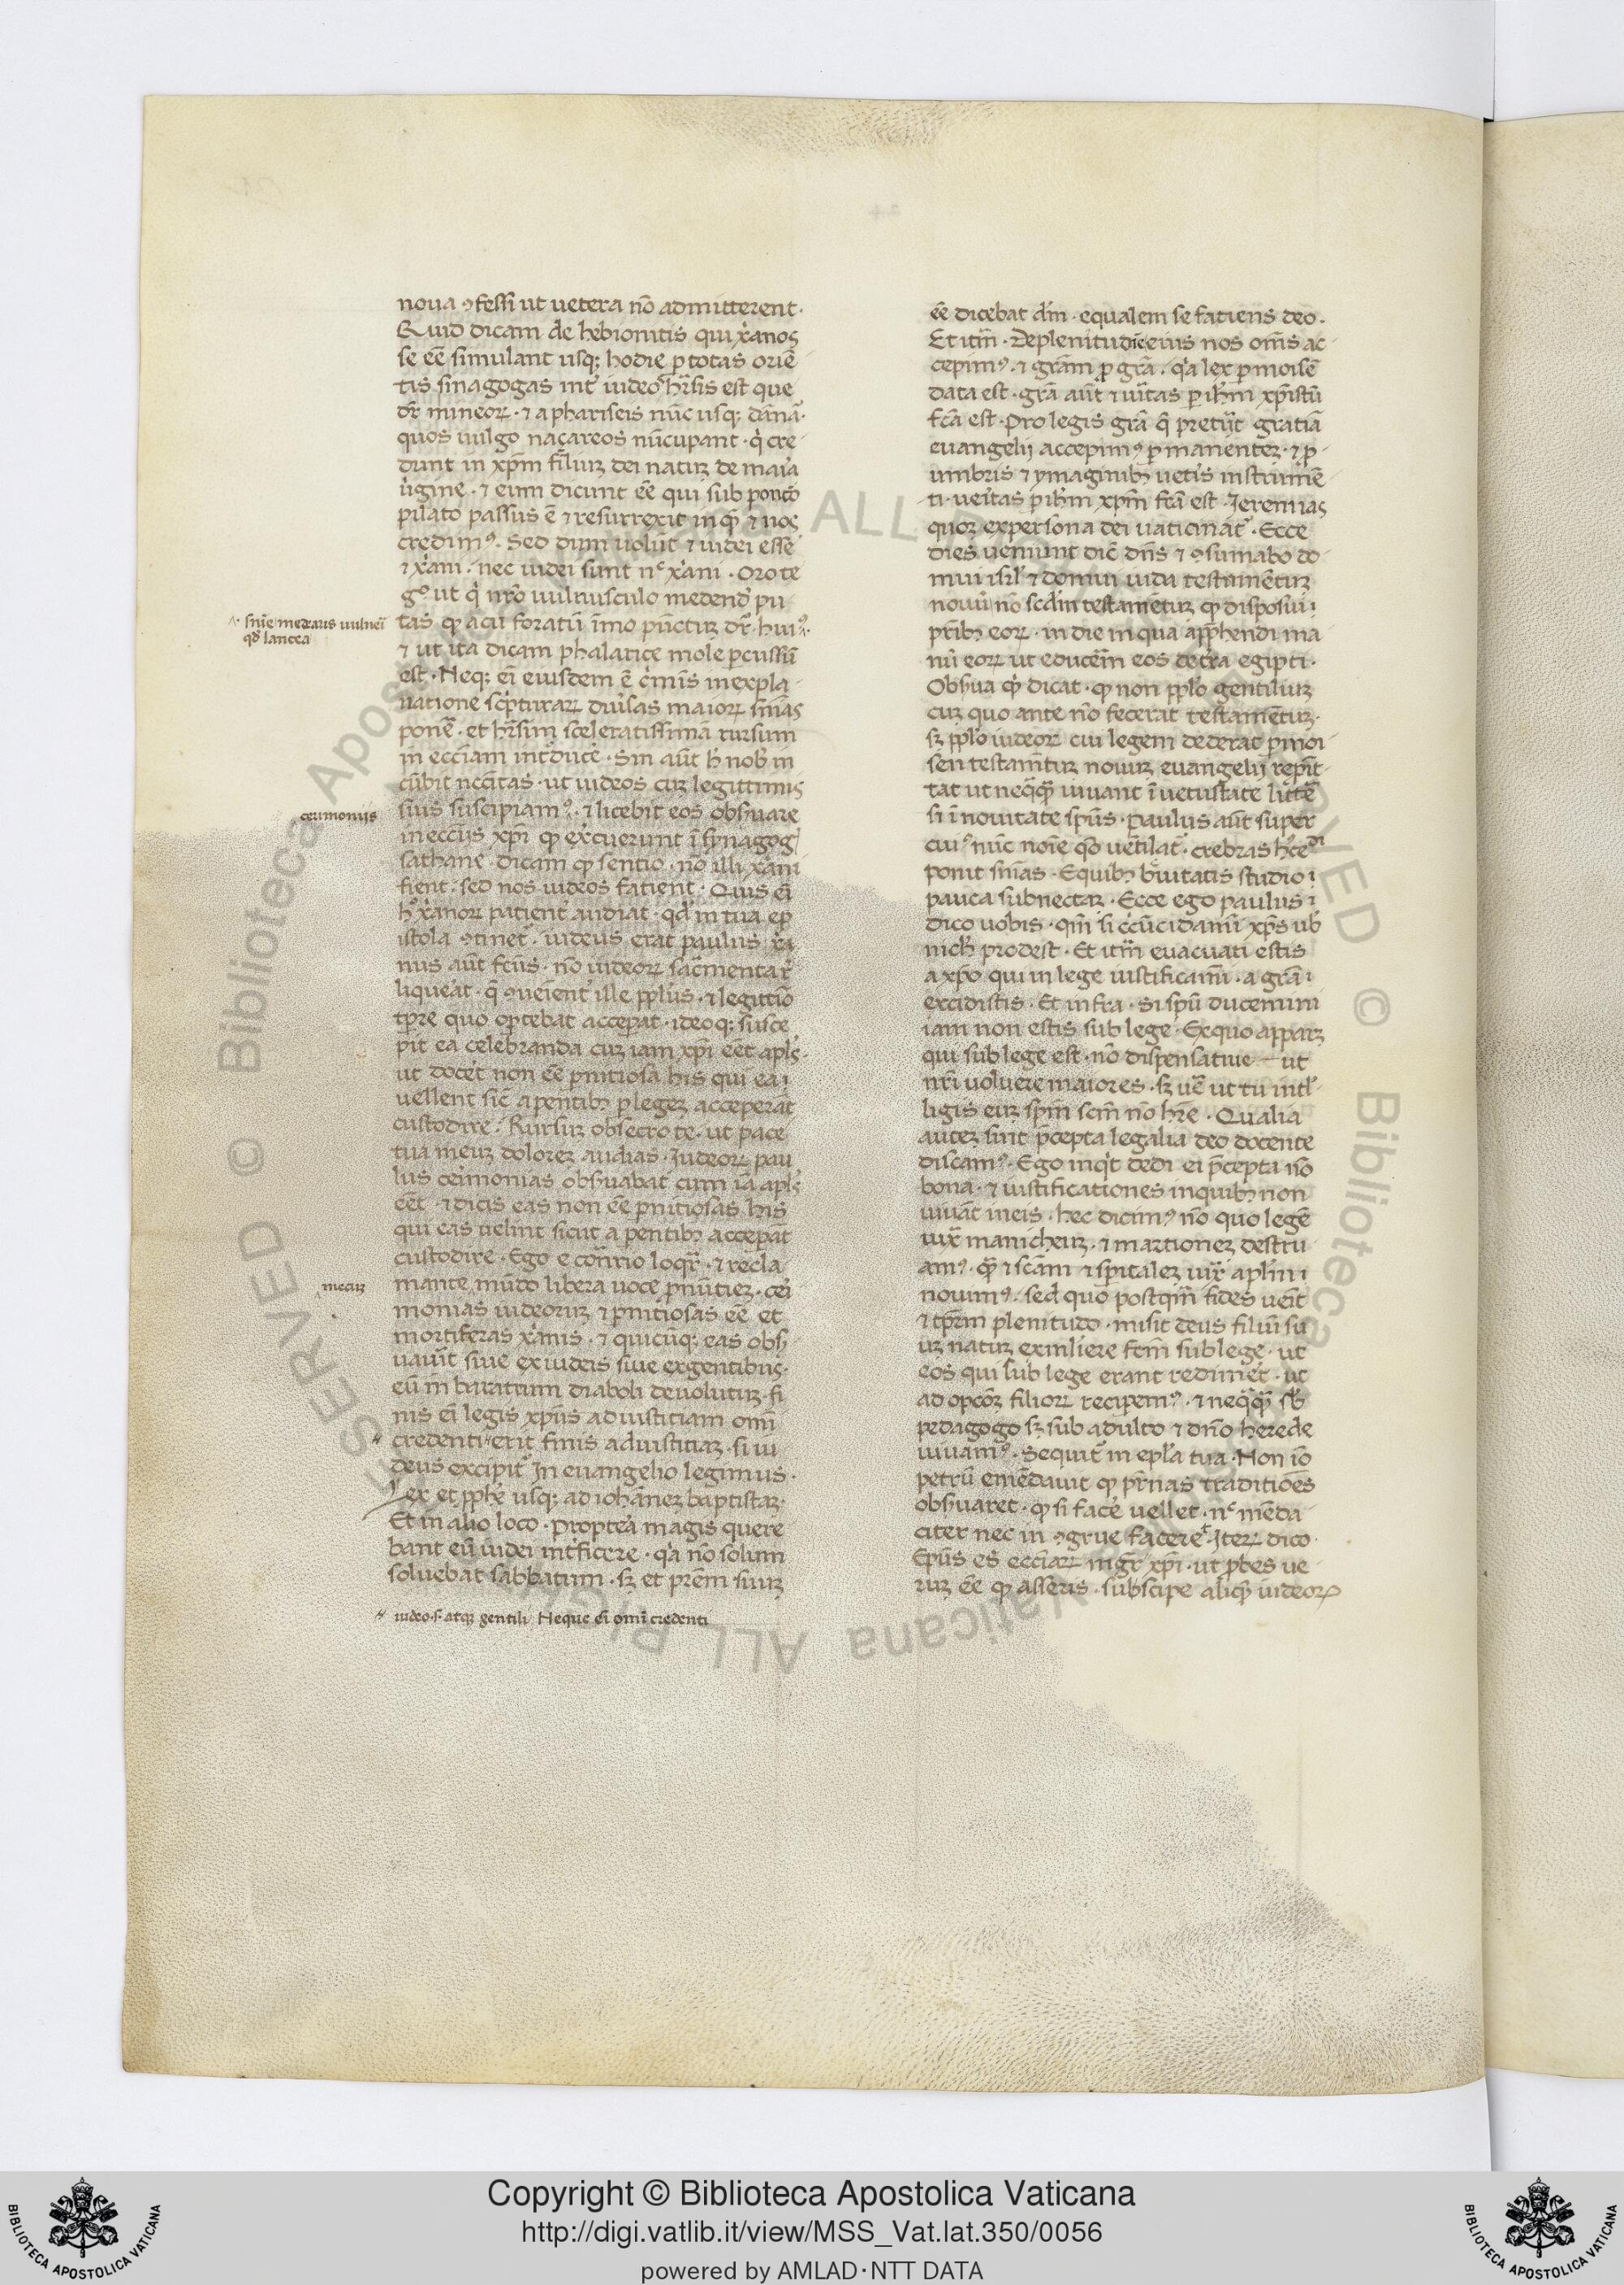 noua ꝯfessi ut uetera nō admitterent·
Quid dicam de hebionitis qui xꝑanos
se eē simulant usq; hodie ꝑ totas oriē
tis sinagogas int̄ iudeos hr̄sis est que
dr̄ mineoꝝ · ⁊ a phariseis nūc usq; dānat̄
quos uulgo naçareos nūcupant · q̇ cre
dunt in xp̄m filiuꝫ dei natuꝫ de maīa
uirgine · ⁊ eum dicunt eē qui sub pontio
pilato passus ē ⁊ resurrexit in quē ⁊ nos
credimꝰ · Sed dum uolūt ⁊ iudei esse
⁊ xꝑani · nec iudei sunt nec xꝑani · Oro te
gͦ ut q̇ nr̄o uulnusculo medendū pu
tas ꝙ acu foratū īmo pūctuꝫ dr̄ · huiꝰ
siñie medearis uulneri
qd̄ lancea
⁊ ut ita dicam phalarice mole ꝑcussū
est · Neq; ei̅ eiusdem ē c̓mis in expla
natione scp̄turaꝝ diu̓sas maioꝝ sn̄ias
poner̄ · et hr̄sim sceleratissimā rursum
in eccl̄iam int̓duce̓ · Sin aūt h̓ nob̓ in
cūbit nc̄citas · ut iudeos cuꝫ legittimis
cerimoniis
suis suscipiamꝰ · ⁊ licebit eos obs̓uare
in eccl̄iis xp̄i ꝙ exc̓uerunt ī synagog̓
sathane · dicam ꝙ sentio · nō illi xꝑani
fient · sed nos iudeos fatient · Quis ei̅
h̓ xꝑanoꝝ patient̓ audiat · qd̓ in tua ep̄
istola ꝯtinet̓ · iudeus erat paulus xꝑa
nus aūt fc̄us · nō iudeoꝝ sac̄menta r̓
liquerat · q̄ ꝯuenient̓ ille ppl̄us · ⁊ legittīo
tp̄re quo oportebat acceꝑat · ideoq; susce
pit ea celebranda cuꝫ iam xp̄i eēt apl̄s·
ut doce̓t non eē ꝑnitiosa his qui ea
uellent sic̄ a parentibꝫ ꝑ legeꝫ acceperāt
custodire · Rursuꝫ obsecro te · ut pace
tua meuꝫ doloreꝫ audias · Iudeoꝝ pau
lus ce̓imonias obs̓uabat cum iā apl̄s
eēt · ⁊ dicis eas non eē ꝑnitiosas his
qui eas uelint sicut a parentibꝫ acceꝑāt
custodire · Ego e cont̄rio loqr̄ · ⁊ recla
mante mūdo libera uoce ꝓnūtieꝫ · ce̓i
mecuꝫ
monias iudeoruꝫ ⁊ ꝑnitiosas eē et
mortiferas xꝑanis · ⁊ quicūq; eas obs̓
uauīt siue ex iudeis siue ex gentibus·
eū in baratrum diaboli deuolutuꝫ · fi
nis ei̅ legis xp̄us ad iustitiam omī
credenti · erit finis ad iustitiaꝫ · si iu
deus excipit̓ In euangelio legimus·
Lex et pph̄e usq; ad ioh̄aneꝫ baptistaꝫ·
Et in alio loco · Proptea̓ magis quere
bant eū iudei int̓ficere · qa̓ nō solum
soluebat sabbatum · sꝫ et pr̄em suuꝫ
iudeo · s · atqꝫ gentili Neque ei̅ omī credenti
eē dicebat dm̄ · equalem se fatiens deo·
Et itm̄ · De plenitudīe eius nos om̄s ac
cepimꝰ · ⁊ grām ꝓ grā · qa̓ lex ꝑ moisē
data est · grā aūt ⁊ uītas ꝑ ih̄m xp̄istū
fc̄a est · Pro legis grā q̄ preterijt gratiā
euangelij accepimꝰ ꝑmanenteꝫ · ⁊ ꝓ
umbris ⁊ ymaginibꝫ uet̓is instrumē
ti · ue̓itas ꝑ ih̄m xp̄m fc̄a est · Ieremias
quoꝫ ex persona dei uaticinat̓ · Ecce
dies ueniunt dic̄ dn̄s ⁊ ꝯsumabo do
mui isrl̄ ⁊ domui iuda testamētuꝫ
nouū nō scd̄m testamētuꝫ ꝙ disposui
pr̄ibꝫ eoꝝ · in die in qua app̄hendi ma
nū eoꝝ ut educēm eos de tra̓ egipti·
Obs̓ua qd̄ dicat · ꝙ non ppl̄o gentiliuꝫ
cuꝫ quo ante nō fecerat testamētuꝫ·
sꝫ ppl̄o iudeoꝝ cui legem dederat ꝑ moi
sen testamētuꝫ nouuꝫ euangelij repīt
tat ut neq̄q̄ꝫ uiuant ī uetustate litt̄e
s̄ ī nouitate spūs · Paulus aūt super
cuiꝰ nūc noīe qō uentilat̓ · crebras h̓cem̄oī
ponit sn̄ias · E quibꝫ breuitatis studio
pauca subnectaꝫ · Ecce ego paulus
dico uobis · qm̄ si circūcidamī xp̄s uob̓
nich̓ prodest · Et itm̄ euacuati estis
a xp̄o qui in lege iustificamī · a grā
excidistis · Et infra · Si spū ducemini
iam non estis sub lege · Ex quo apparꝫ
qui sub lege est · nō dispensatiue — ut
nr̄i uoluere maiores · sꝫ ue̓ ut tu intl̓
ligis eū spm̄ scm̄ nō hr̄e · Qualia
auteꝫ sint p̄cepta legalia deo docente
discamꝰ · Ego inqt̓ dedi ei p̄cepta nō
bona · ⁊ iustificationes in quibꝫ non
uiuāt in eis · hec dicimꝰ nō quo legē
iux̄ manicheuꝫ · ⁊ martioneꝫ destru
amꝰ · quā ⁊ scām ⁊ spiritaleꝫ iux̄ apl̄m
nouimꝰ · sed quo postqm̄ fides ueīt
⁊ tp̄rm plenitudo · misit deus filiū su
uꝫ natuꝫ ex muliere fc̄m sub lege · ut
eos qui sub lege erant redime̓t · ut
ad opc̄oꝫ filioꝝ reciperemꝰ · ⁊ neq̄q̄ꝫ sb̓
pedagogo sꝫ sub adulto ⁊ dn̄o herede
uiuamꝰ · Sequit̓ in epl̄a tua · Non iō
petrū emēdauit ꝙ pr̄nas traditiōes
obs̓uaret · ꝙ si face̓ uellet · nec mēda
citer nec in ꝯgrue facere̓t · Iteꝝ dico·
Ep̄us es eccl̄iaꝝ mgr̄ xp̄i · ut ꝓbes ue
ruꝫ eē ꝙ asseris · subscipe aliquē iudeoꝝ
Copyright © Biblioteca Apostolica Vaticana
http://digi.vatlib.it/view/MSS_Vat.lat.350/0056
powered by AMLAD·NTT DATA
BIBLIOTECA APOSTOLICA VATICANA
BIBLIOTECA APOSTOLICA VATICANA